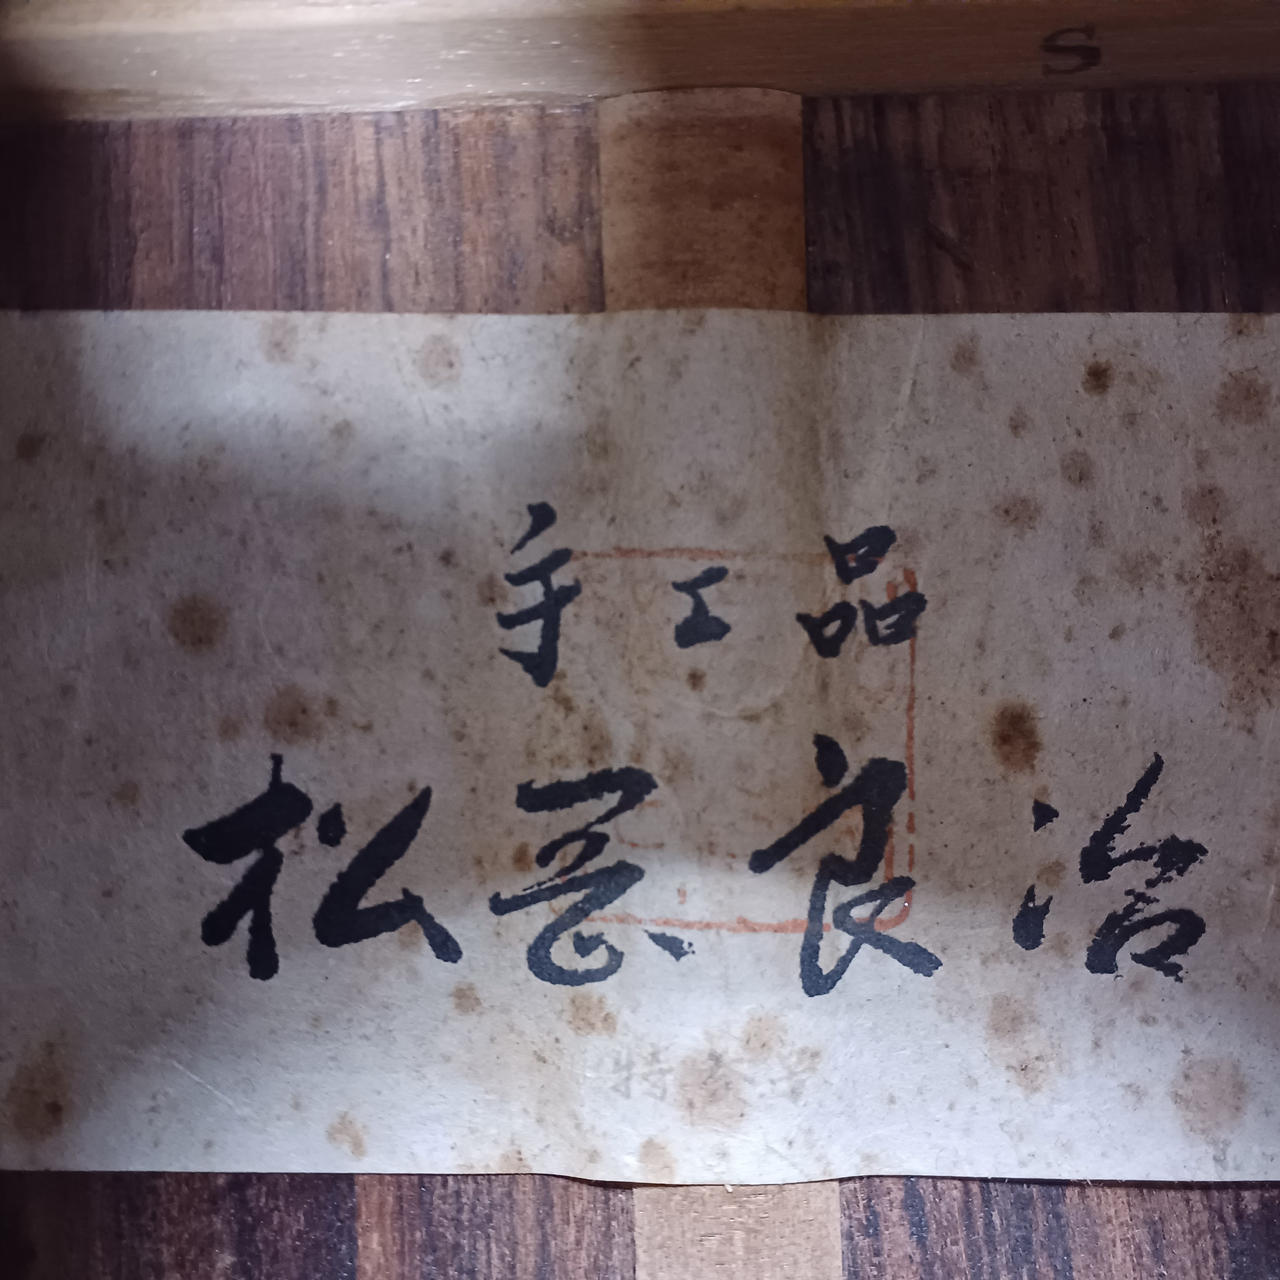 S
手工品
松岡良治